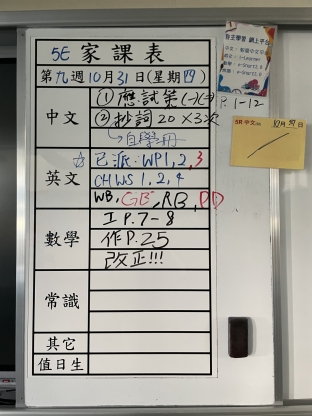 5E 家課表
第九週10月31日(星期四)
中文
① 應試策(一)(二) P.1-12
② 抄詞20×3次
自學冊
英文
☆ 已派:WP1,2,3
CHWS 1,2,4
WB, GB, RB, DD
數學
工P.7-8
作P.25
改正!!!
常識
其它
值日生
自主學習 網上平台
5E 中文